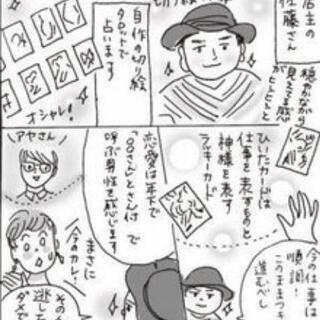 店主の
佐藤さん
穏やかながら
見えてる感
がひしひしと
自作の切り絵
タロットで
占います
オシャレ!
ひいたカードは
仕事を表すものと
神様を表す
ラッキーカード
今の仕事は
順調!
このままつき
進むべし
恋愛は年下で
「○○さん」とさん付けで
呼ぶ男性を感じます
アヤさん
まさに
今のカレ!
その人
逃した
ダメで